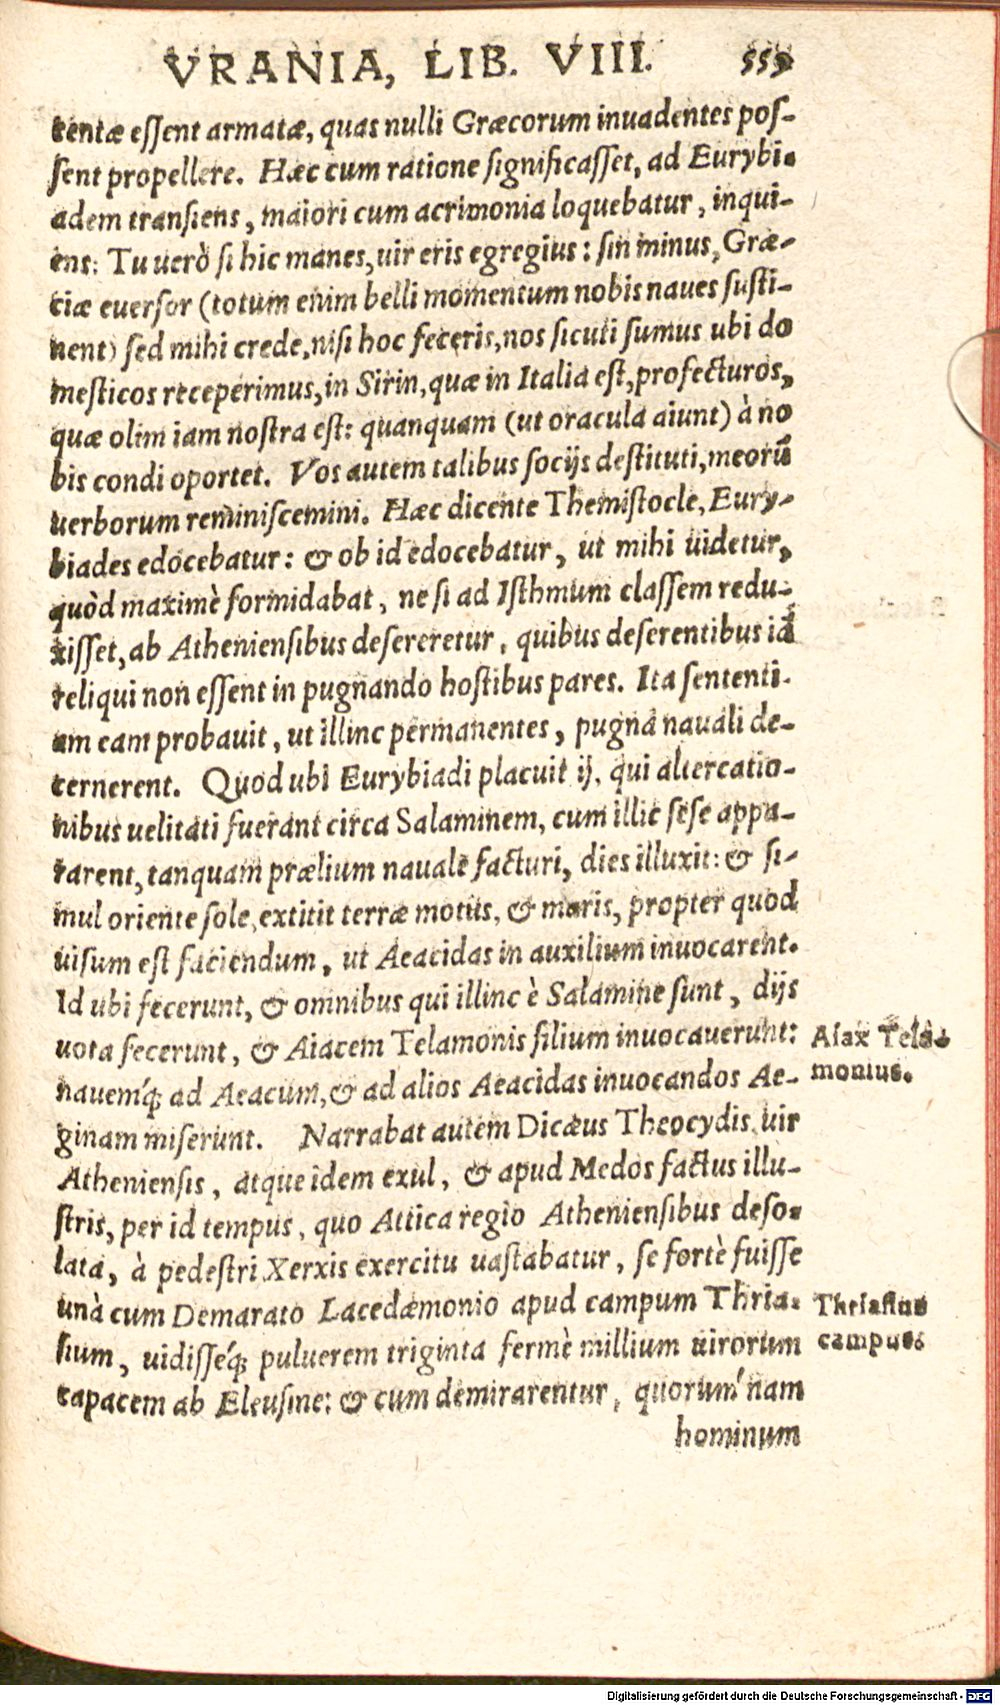 VRANIA, LIB. VIII. 559
tentæ eſſent armatæ, quas nulli Græcorum inuadentes poſ-
ſent propellere. Hæc cum ratione ſignificaſſet, ad Eurybi-
adem tranſiens, maiori cum acrimonia loquebatur, inqui-
ens: Tu uerò ſi hic manes, uir eris egregius: ſin minus, Græ-
ciæ euerſor (totum enim belli momentum nobis naues ſuſti-
nent) ſed mihi crede, niſi hoc feceris, nos ſicuti ſumus ubi do
meſticos receperimus, in Sirin, quæ in Italia eſt, profecturos,
quæ olim iam noſtra eſt: quanquam (ut oracula aiunt) à no
bis condi oportet. Vos autem talibus ſocijs deſtituti, meorū
uerborum reminiſcemini. Hæc dicente Themiſtocle, Eury-
biades edocebatur: & ob id edocebatur, ut mihi uidetur,
quòd maximè formidabat, ne ſi ad Iſthmum claſſem redu-
xiſſet, ab Athenienſibus deſereretur, quibus deſerentibus iā
reliqui non eſſent in pugnando hoſtibus pares. Ita ſententi-
am eam probauit, ut illinc permanentes, pugnā nauali de-
cernerent. Quod ubi Eurybiadi placuit ij, qui altercatio-
nibus uelitati fuerant circa Salaminem, cum illic ſeſe appa-
rarent, tanquam prælium nauale facturi, dies illuxit: & ſi-
mul oriente ſole, extitit terræ motus, & maris, propter quod
uiſum eſt faciendum, ut Aeacidas in auxilium inuocarent.
Id ubi fecerunt, & omnibus qui illinc è Salamine ſunt, dijs
uota fecerunt, & Aiacem Telamonis filium inuocauerunt:
nauemq́; ad Aeacum, & ad alios Aeacidas inuocandos Ae-
ginam miſerunt. Narrabat autem Dicæus Theocydis, uir
Athenienſis, atque idem exul, & apud Medos factus illu-
ſtris, per id tempus, quo Attica regio Athenienſibus deſo-
lata, à pedeſtri Xerxis exercitu uaſtabatur, ſe fortè fuiſſe
unà cum Demarato Lacedæmonio apud campum Thria-
ſium, uidiſſeq́; puluerem triginta fermè millium uirorum
capacem ab Eleuſine: & cum demirarentur, quorum'nam
hominum
Aiax Tela-
monius.
Thriaſius
campus.
Digitalisierung gefördert durch die Deutsche Forschungsgemeinschaft - DFG